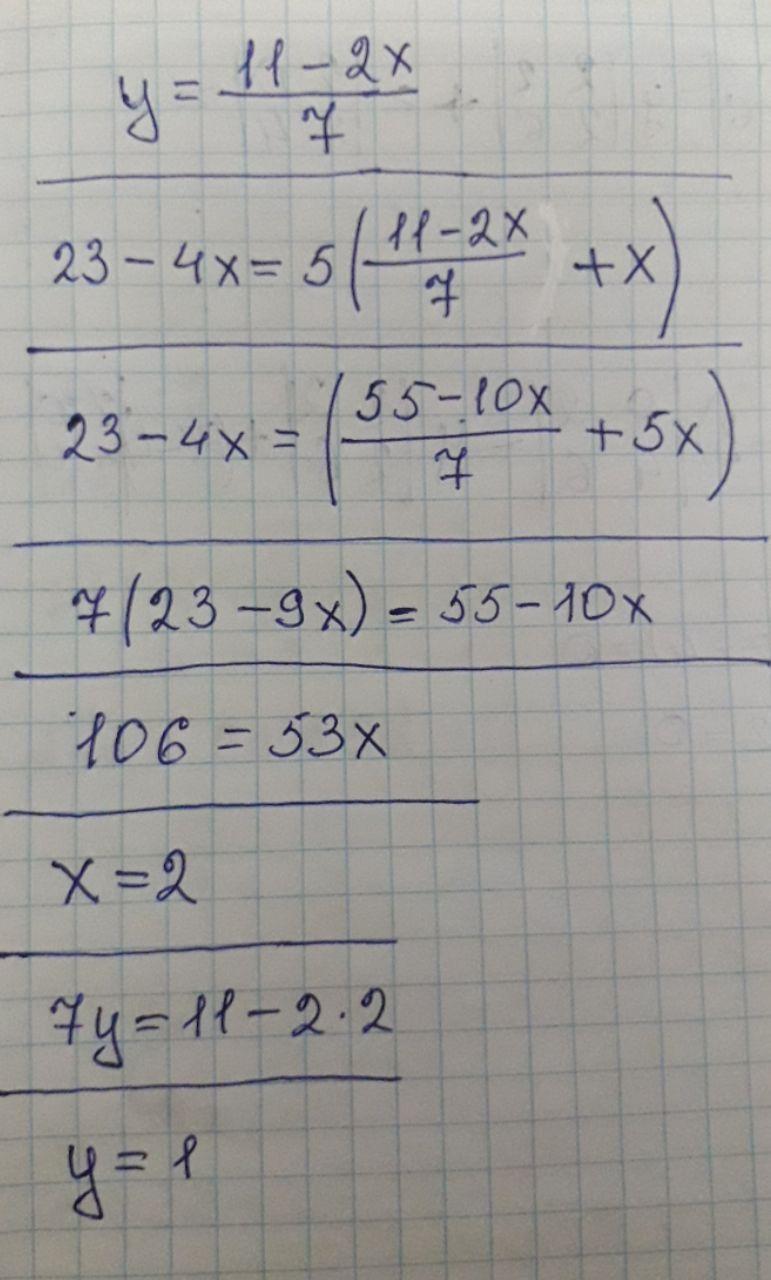 y = \frac{11 - 2x}{7}
23 - 4x = 5 \left( \frac{11 - 2x}{7} + x \right)
23 - 4x = \left( \frac{55 - 10x}{7} + 5x \right)
7(23 - 9x) = 55 - 10x
106 = 53x
x = 2
7y = 11 - 2 · 2
y = 1